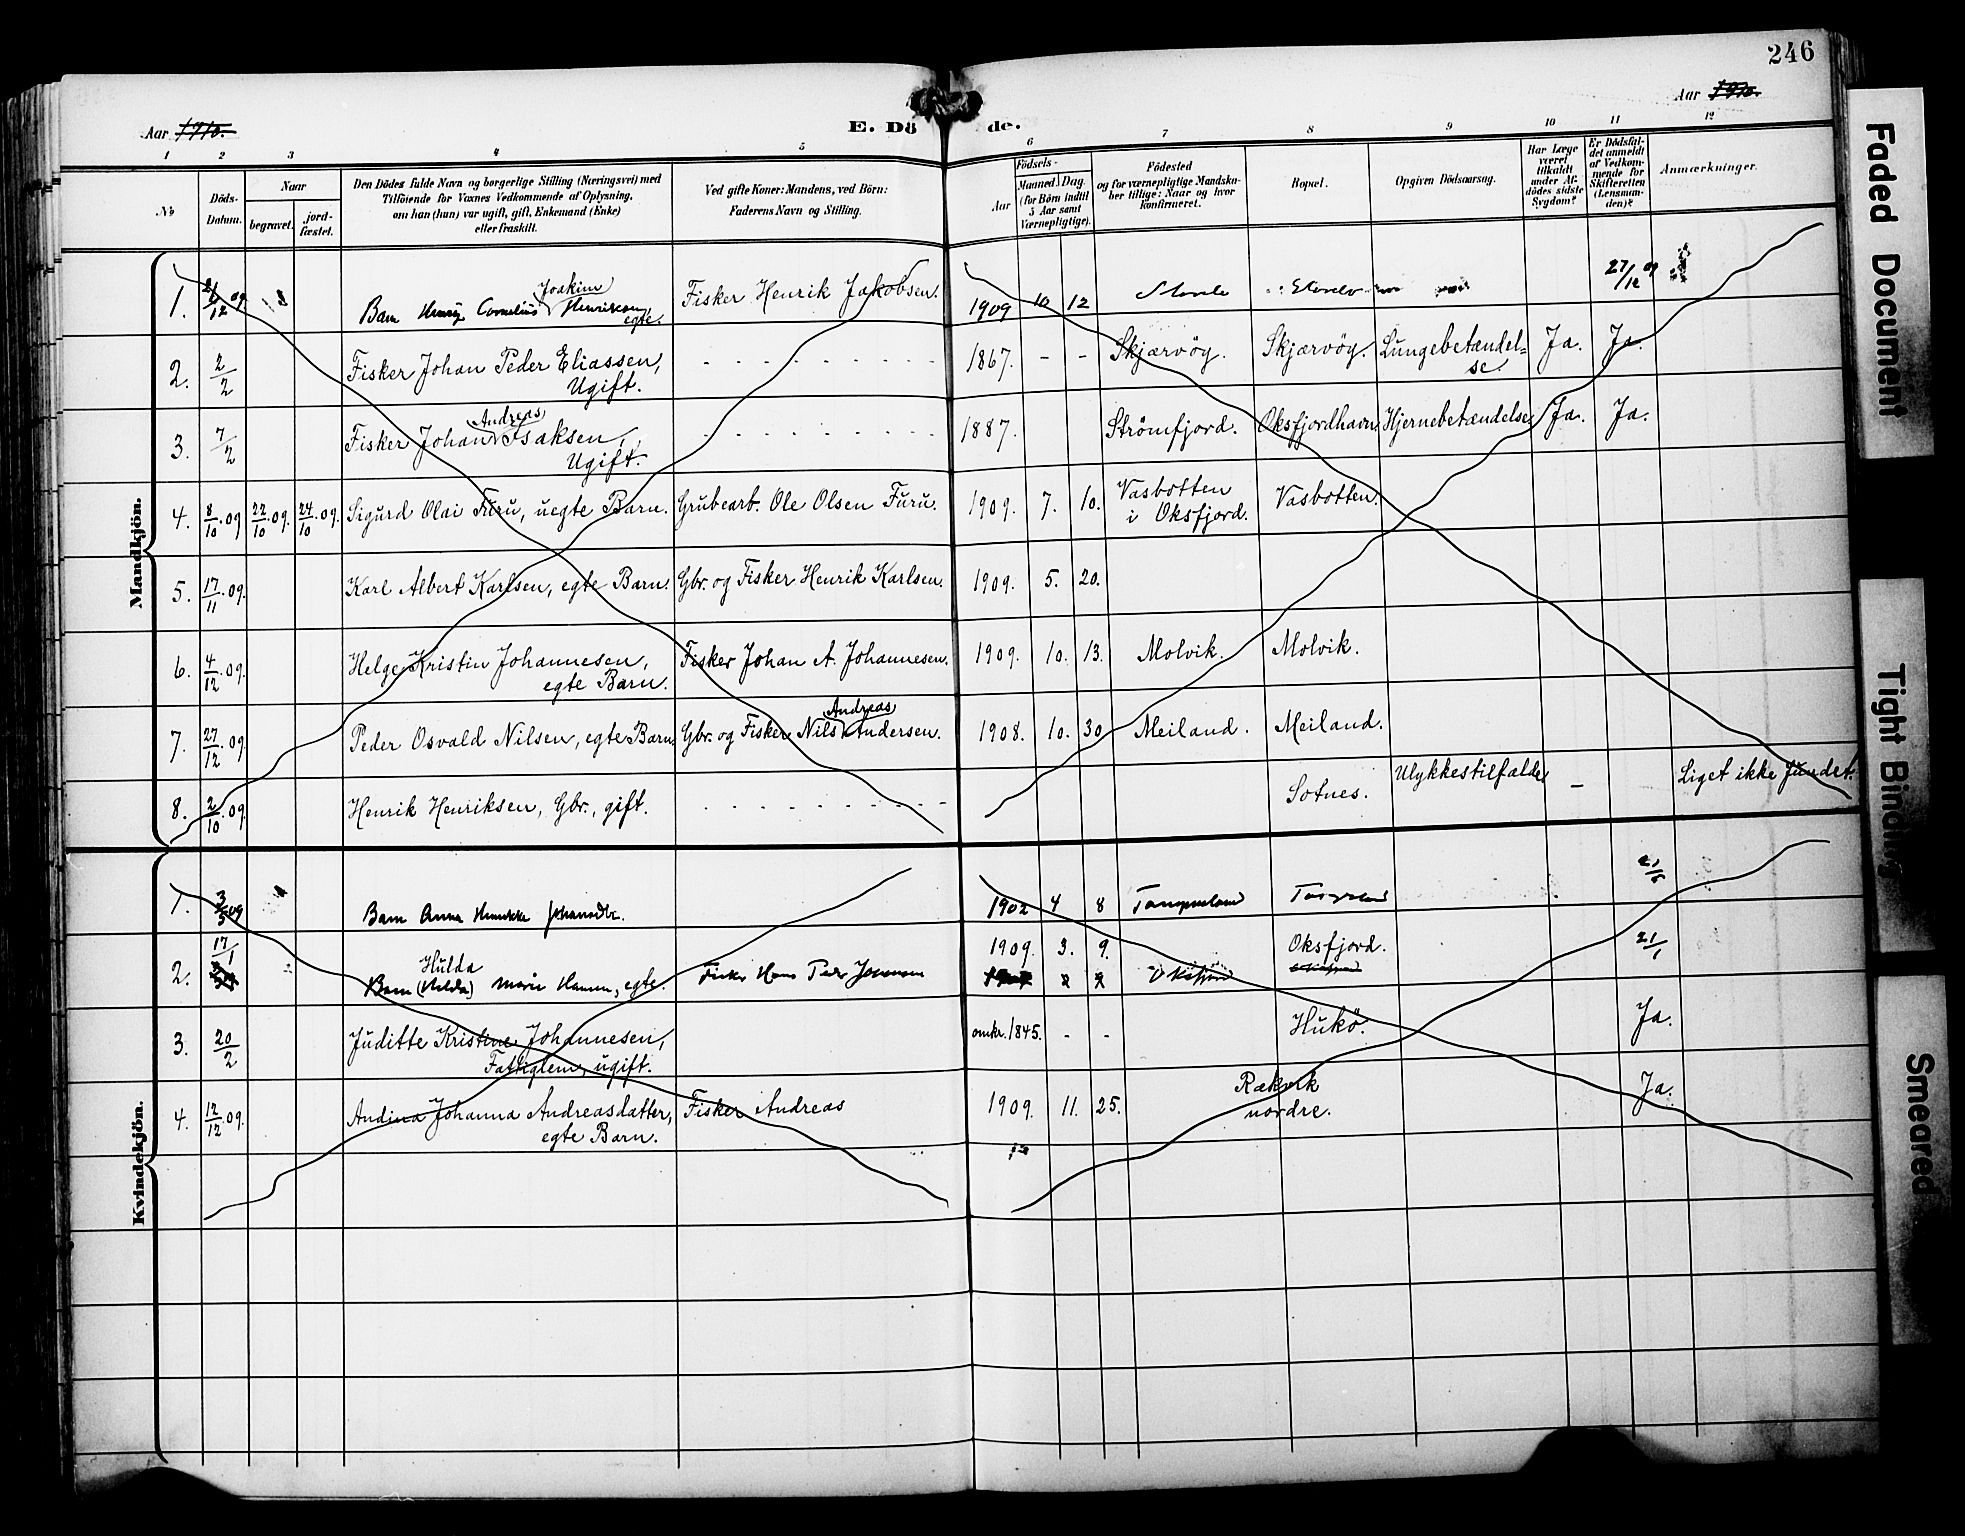 246
Aar 1910.
E. Dö de.
Aar 1910.
1 2 3 4 5 6 7 8 9 10 11 12
No
Döds-
Datum.
Naar
begravet.
jord-
fæstet.
Den Dödes fulde Navn og borgerlige Stilling (Næringsvei) med
Tilföiende for Voxnes Vedkommende af Oplysning,
om han (hun) var ugift, gift, Enkemand (Enke)
eller fraskilt.
Ved gifte Koner: Mandens, ved Börn:
Faderens Navn og Stilling.
Födsels-
Aar
Maaned. Dag.
(for Börn indtil
5 Aar samt
Værnepligtige).
Födested
og for værnepligtige Mandska-
ber tillige: Naar og hvor
konfirmeret.
Bopæl.
Opgiven Dödsaarsag.
Har Læge
været
tilkaldt
under Af-
dödes sidste
Sygdom?
Er Dödsfal-
det anmeldt
af Vedkom-
mende for
Skifteretten
(Lensman-
den)?
Anmærkninger.
Mandkjön.
Joakim
1. 21/12 09 Barn Henry Cornelius Henriksen, Fisker Henrik Jakobsen. 1909 10 12 27/12 09
egte.
2. 2/2 Fisker Johan Peder Eliassen, - - - - - - - - - 1867. - - Skjærvög. Skjærvög. Lungebetændel= Ja. Ja.
Ugift. se.
Andreas
3. 7/2 Fisker Johan Isaksen, - - - - - - - - - 1887. Strömfjord. Oksfjordhavn. Hjernebetændelse Ja. Ja.
Ugift.
4. 8/10.09 22/10.09. 24/10.09. Sigurd Olai Furu, uegte Barn. Grubearb. Ole Olsen Furu. 1909. 7. 10. Vasbotten Vasbotten.
i Oksfjord.
5. 17/11.09. Karl Albert Karlsen, egte Barn. Gbr. og Fisker Henrik Karlsen. 1909. 5. 20.
6. 4/12.09. Helge Kristin Johannesen, Fisker Johan A. Johannesen. 1909. 10. 13. Molvik. Molvik.
egte Barn.
Andreas
7. 27/12.09. Peder Osvald Nilsen, egte Barn. Gbr. og Fisker Nils Andersen. 1908. 10. 30 Meiland. Meiland.
8. 2/10.09. Henrik Henriksen, Gbr., gift. - - - - - - - - - Sotnes. Ulykkestilfælde - Liget ikke fundet.
Kvindekjön.
1. 3/5 09 Barn Anna 1902 4 8
17/1 1909. 3. 9. Oksfjord. 21/1
Hulda
2. Barn (Hilda) Marie Hansen, egte. Fisker Hans Peder Oksfjord
3. 20/2 Juditte Kristine Johannesen, omkr. 1845. - - Hukö. Ja.
Fattiglem, ugift.
4. 12/12.09. Andina Johanna Andreasdatter, Fisker Andreas 1909. 11. 25. Rækvik Ja.
egte Barn. nordre.
Faded Document
Tight Binding
Smeared